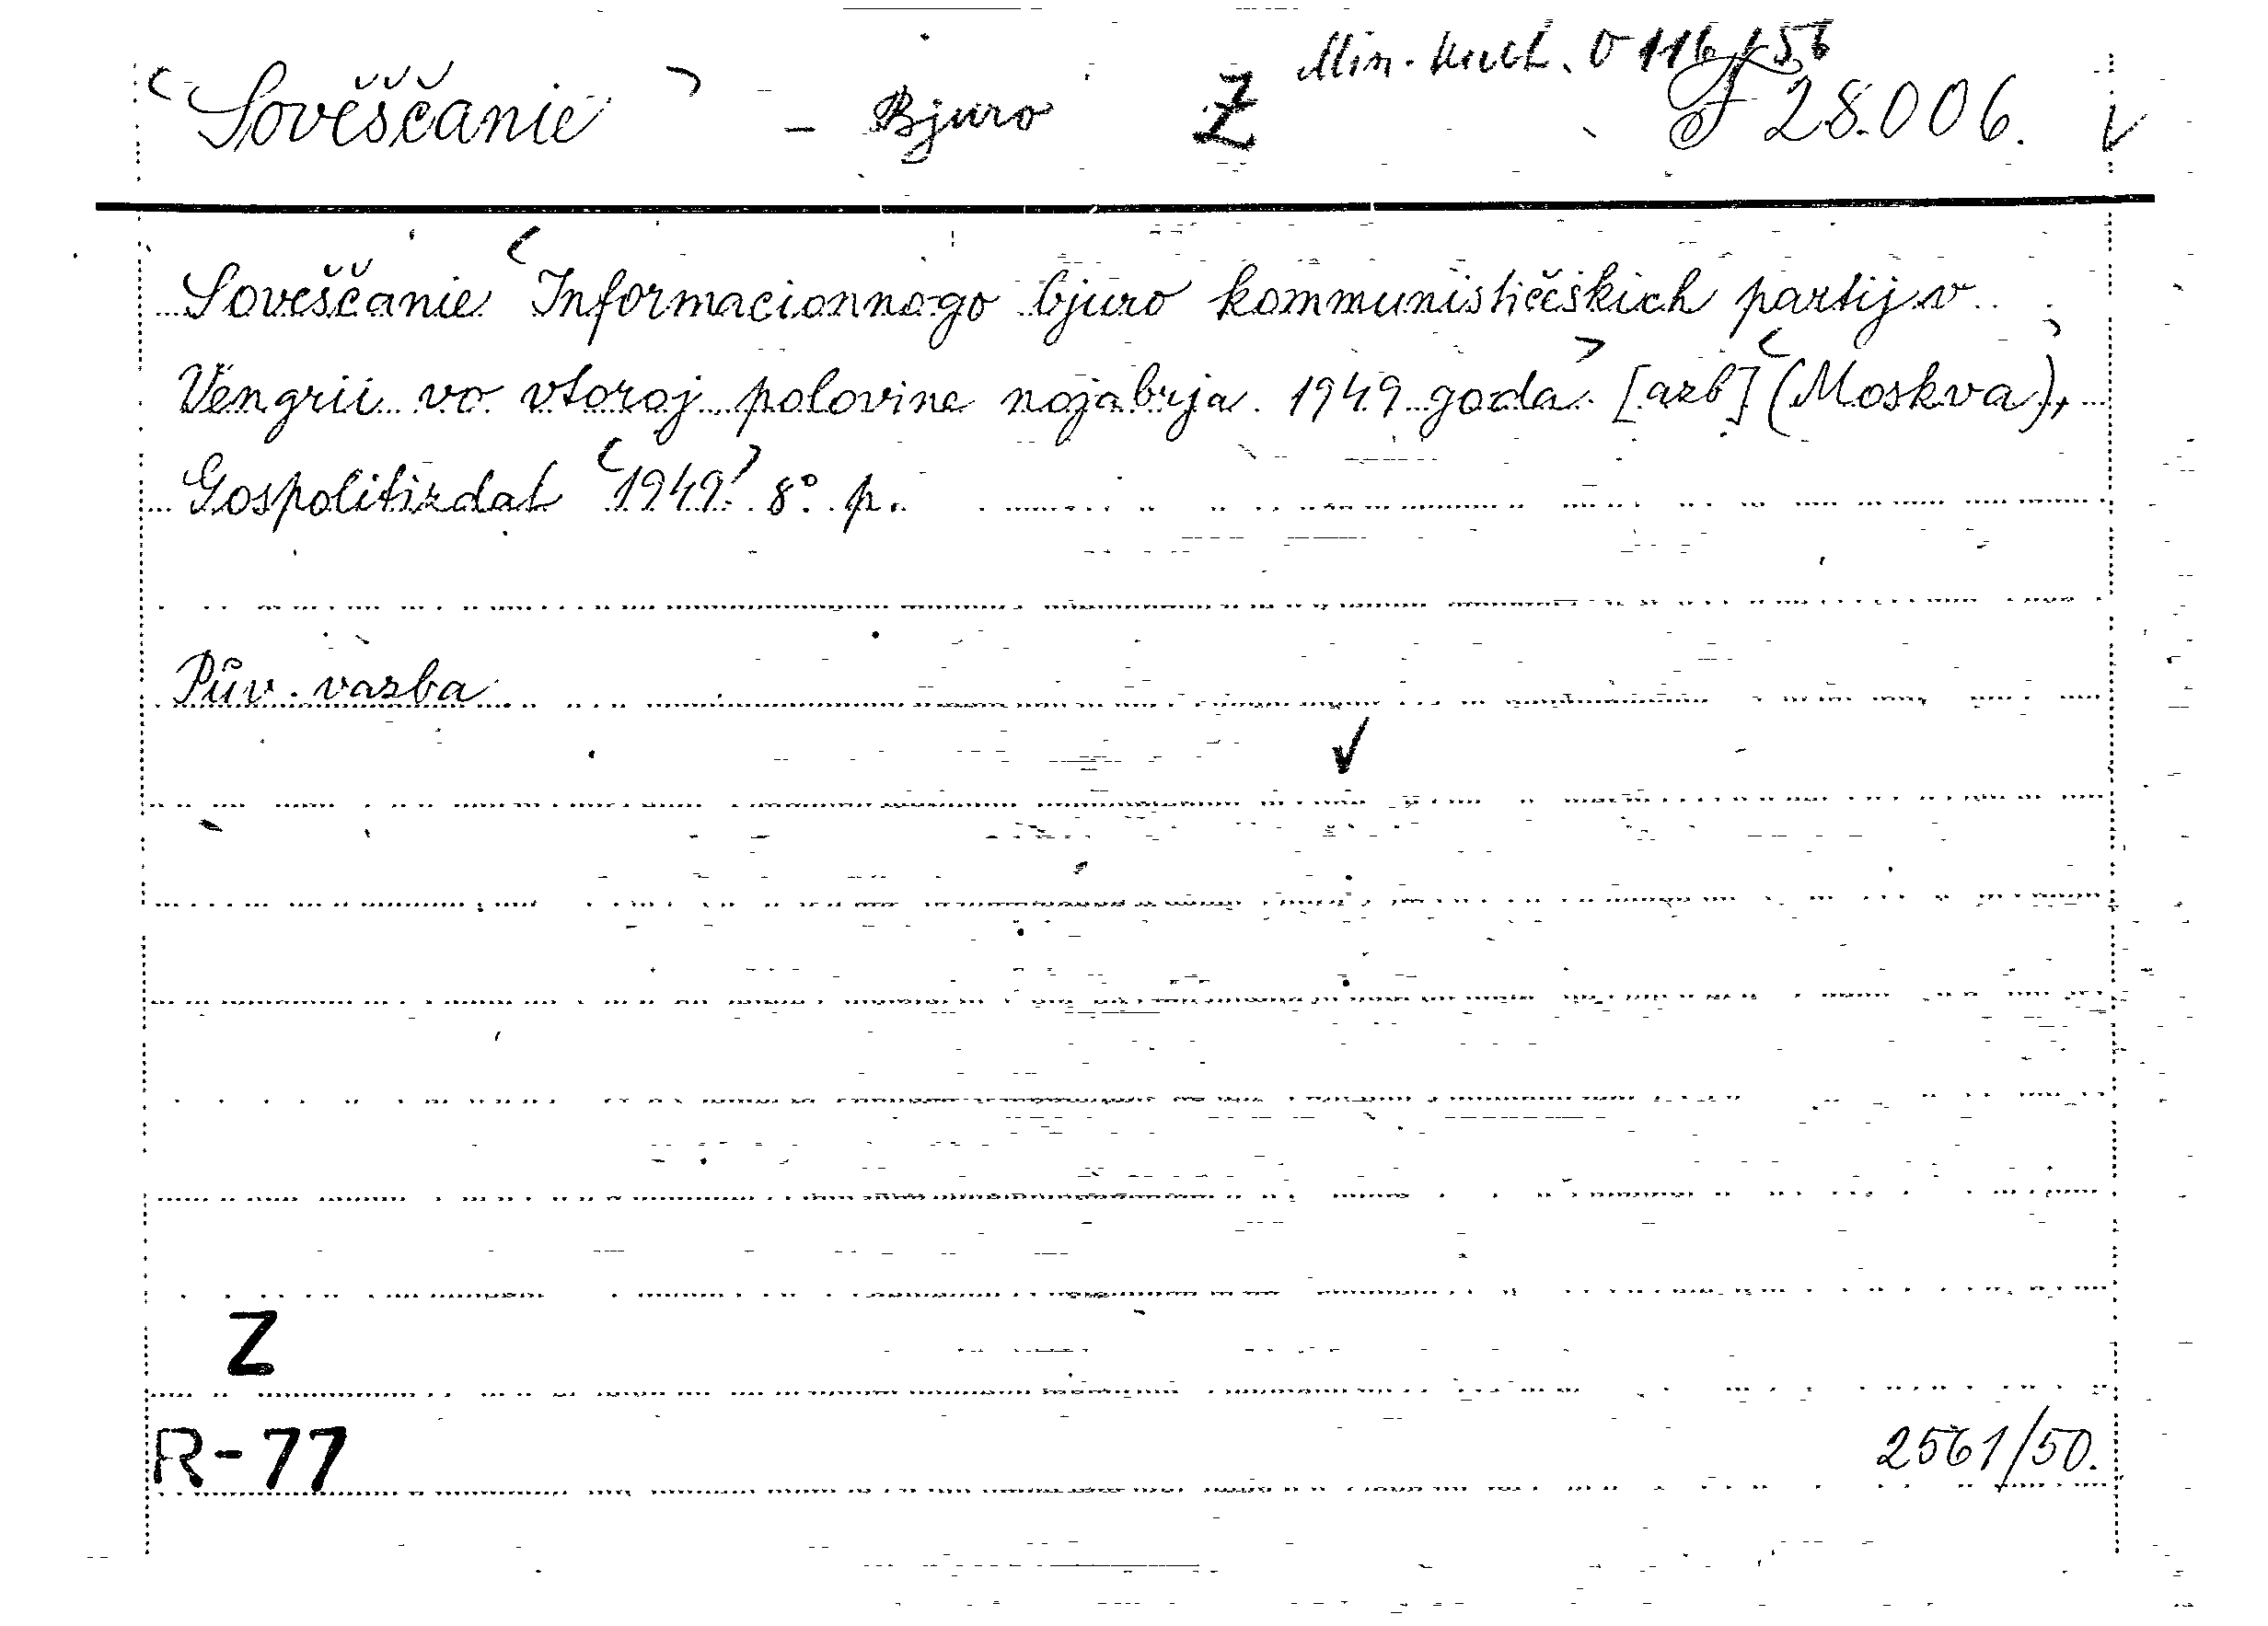 Min. kult. O 116/56
Sověščanie - Bjuro Z F 28.006.
Soveščanie Informacionnogo bjuro kommunističěskich partij v
Věngrii vo vtoroj polovine nojabrja 1949 goda. [azb] (Moskva),
Gospolitizdat 1949. 8° p.
Pův. vazba
Z
R-77
2561/50.